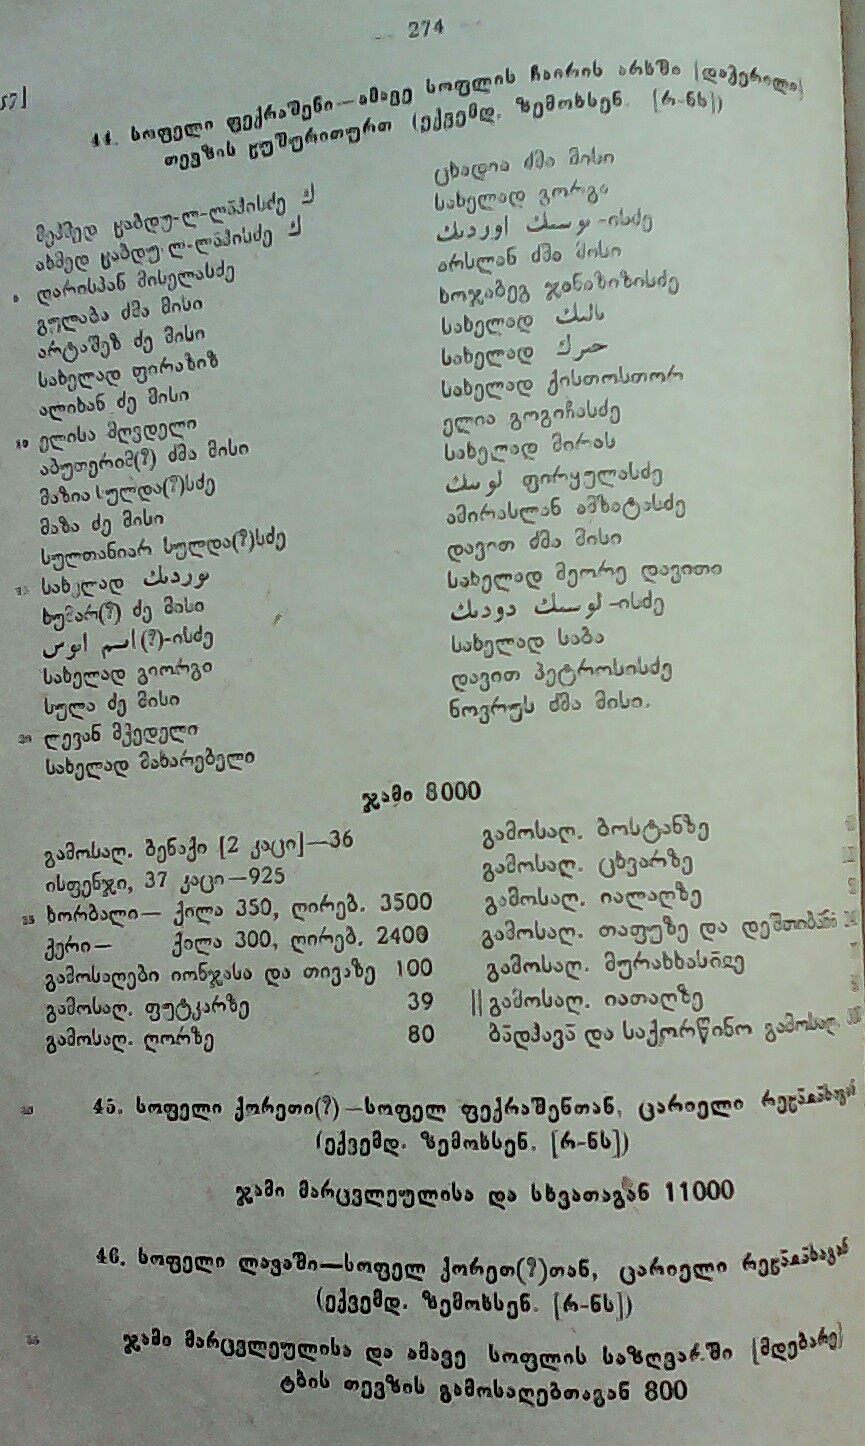 274
57]
44. სოფელი ფექრაშენი—ამავე სოფლის ჩაირის არხში [დაჭერილი]
თევზის წუშურითურთ (ექვემდ. ზემოხსენ. [რ-ნს])
მეჰმედ ყაბდუ-ლ-ლაჰისძე ك
ახმედ ყაბდუ-ლ-ლაჰისძე ك
დარისპან მისელასძე
გულაბა ძმა მისი
არტაშეზ ძე მისი
სახელად ფირაზიზ
ალიხან ძე მისი
10 ელისა მღვდელი
აბუთერიმ(?) ძმა მისი
მაზია სულდა(?)სძე
მაზა ძე მისი
სულთანიარ სულდა(?)სძე
15 სახელად
ხუმარ(?) ძე მისი
(?)-ისძე
სახელად გიორგი
სულა ძე მისი
20 ლევან მჭედელი
სახელად მახარებელი
ცხადია ძმა მისი
სახელად გორგი
-ისძე
არსლან ძმა მისი
ხოჯაბეგ ჯანაზიზისძე
სახელად
სახელად
სახელად ქისთოსთორ
ელია გოგიჩასძე
სახელად მირას
ფირყულასძე
ამირასლან ამზატასძე
დავით ძმა მისი
სახელად მეორე დავითი
-ისძე
სახელად საბა
დავით პეტროსისძე
ნოვრუს ძმა მისი.
ჯამი 8000
გამოსაღ. ბენაქი [2 კაცი]—36
ისფენჯი, 37 კაცი—925
25 ხორბალი— ქილა 350, ღირებ. 3500
ქერი— ქილა 300, ღირებ. 2400
გამოსაღები იონჯასა და თივაზე 100
გამოსაღ. ფუტკარზე 39
გამოსაღ. ღორზე 80
გამოსაღ. ბოსტანზე
გამოსაღ. ცხვარზე
გამოსაღ. იალაღზე
გამოსაღ. თაფუზე და დეშთიბანი
გამოსაღ. მურახხასიღე
|| გამოსაღ. იათაღზე
ბადჰავა და საქორწინო გამოსაღ.
30 45. სოფელი ქორეთი(?)—სოფელ ფექრაშენთან, ცარიელი
(ექვემდ. ზემოხსენ. [რ-ნს])
ჯამი მარცვლეულისა და სხვათაგან 11000
46. სოფელი ლავაში—სოფელ ქორეთ(?)თან, ცარიელი
(ექვემდ. ზემოხსენ. [რ-ნს])
35 ჯამი მარცვლეულისა და ამავე სოფლის საზღვარში [მდებარე]
ტბის თევზის გამოსაღებთაგან 800